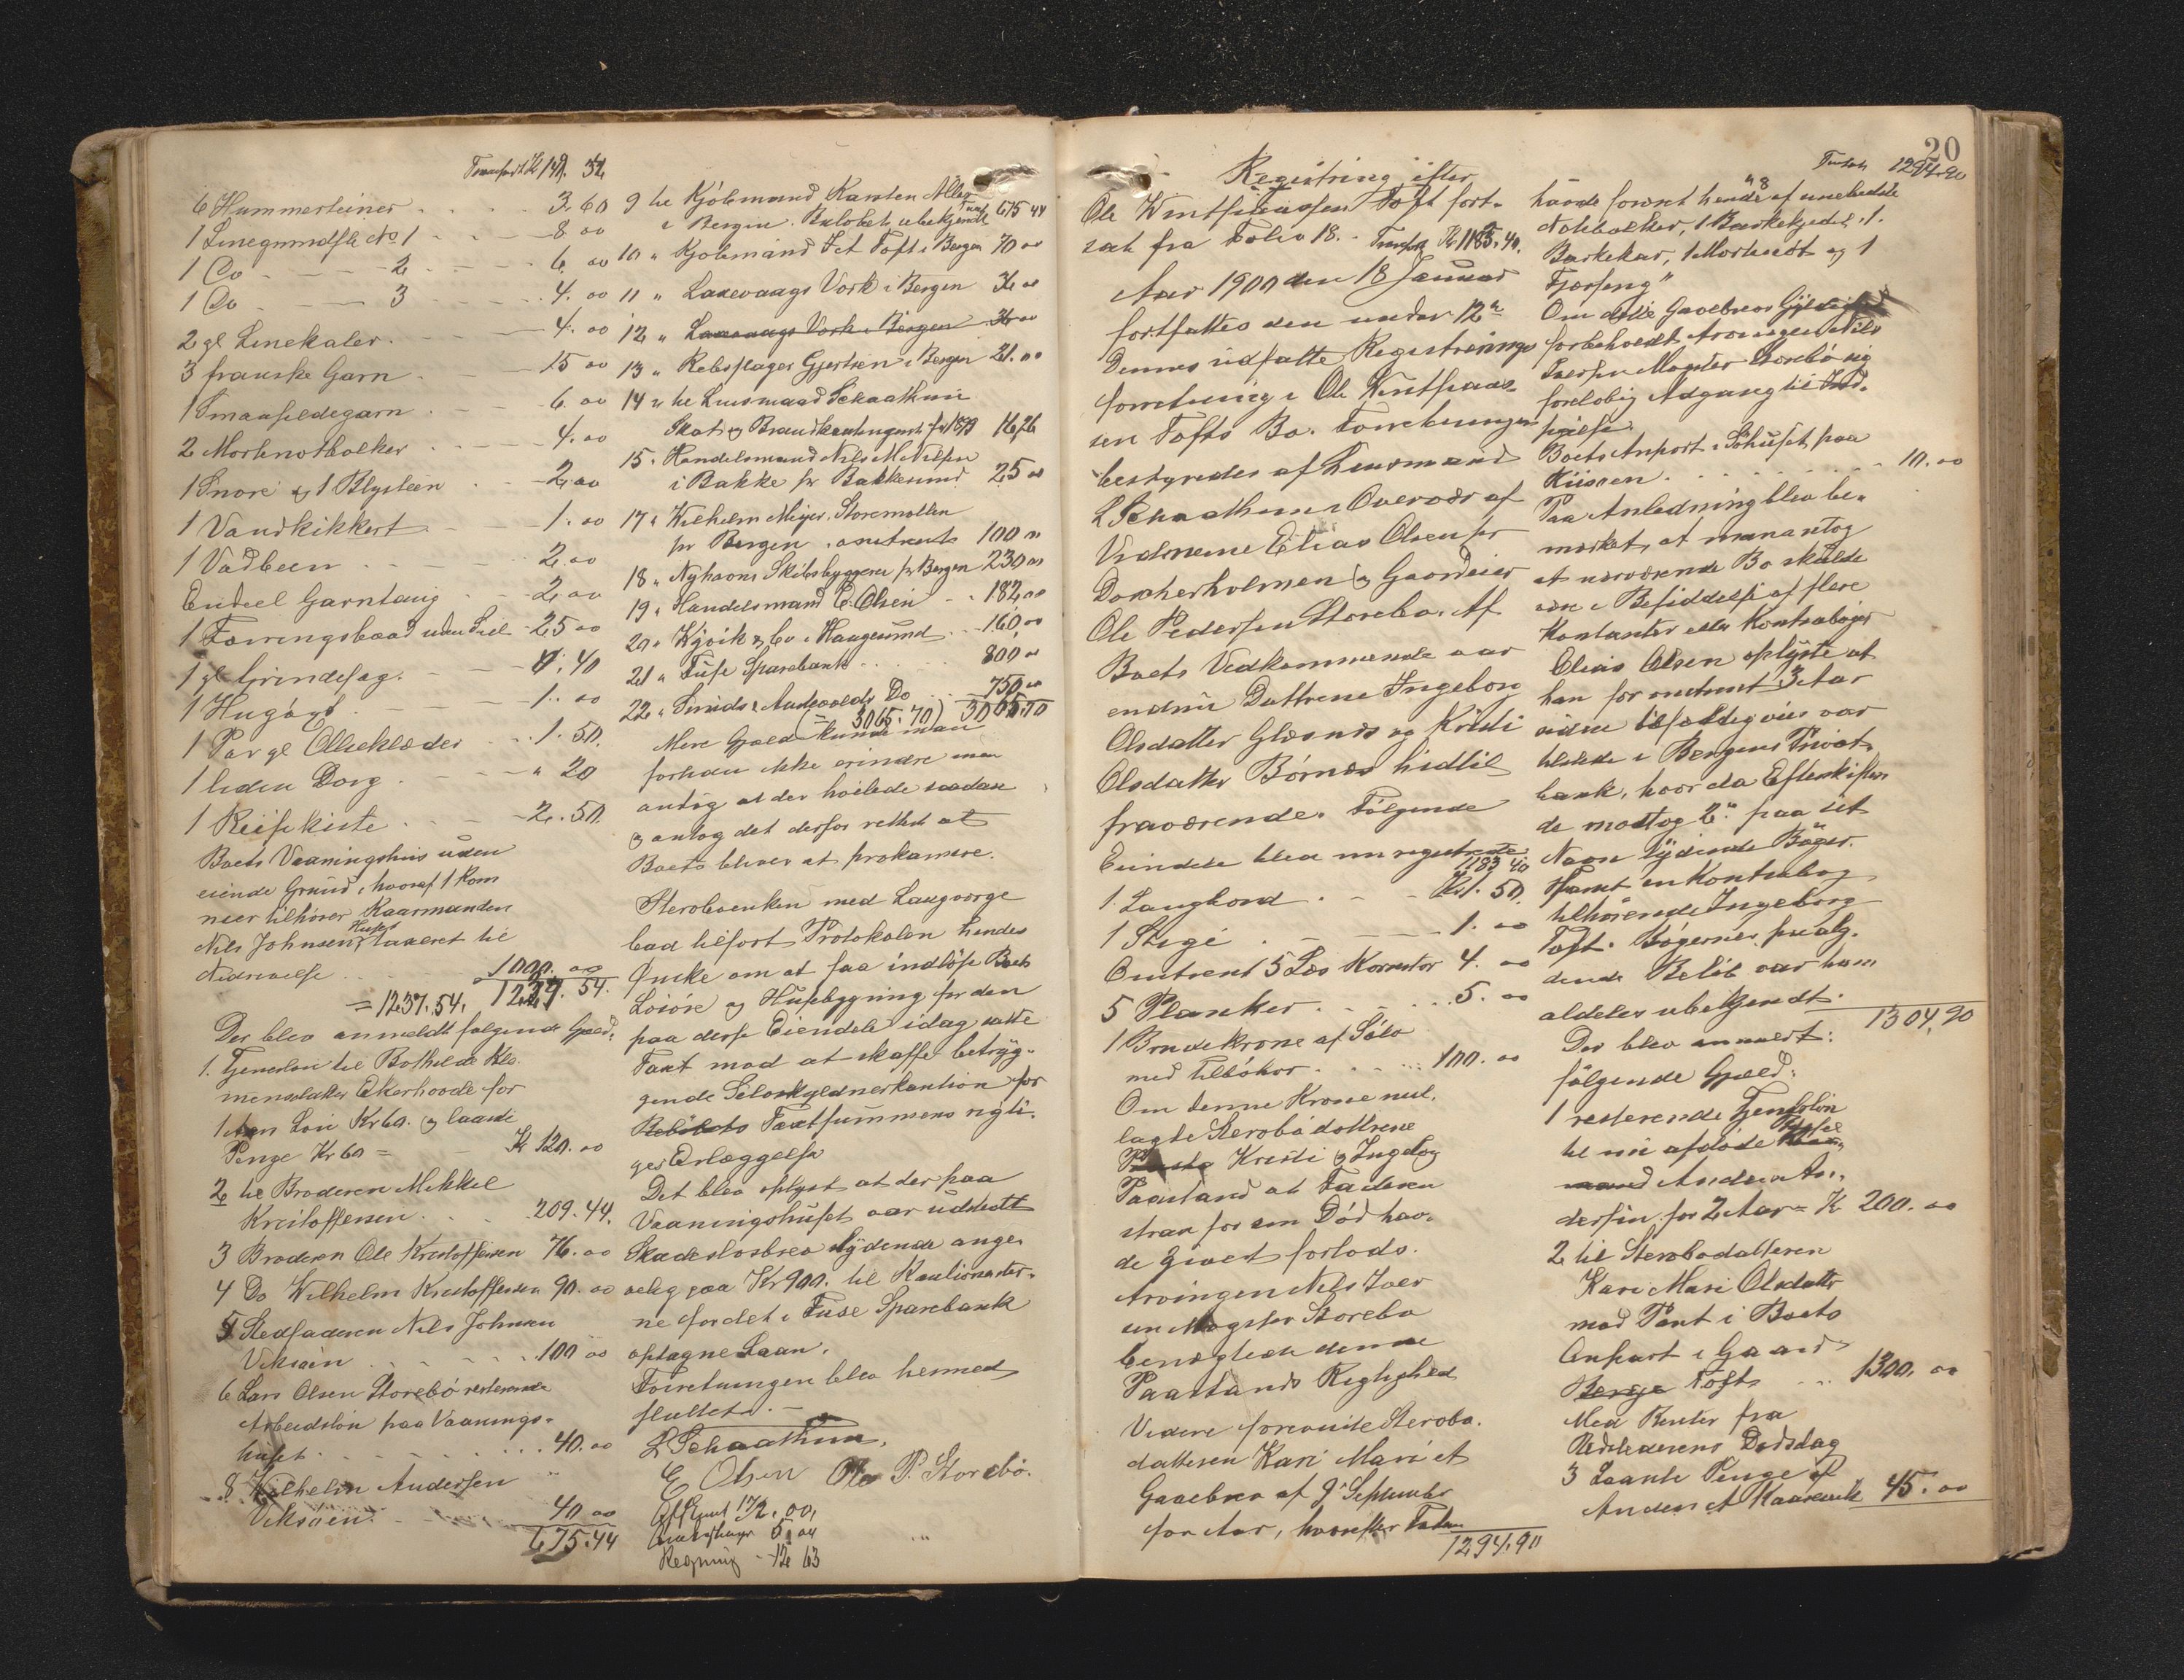 Transport Kr 149. 54
6 Hummerteiner . . . . 3 60
1 Linegrundsle No 1 . . . 8 00
1 Do - - - 2 - - - 6. 00
1 Do - - - 3 . . . 4. 00
2 gl Linekaler. . . 4. 00
3 franske Garn . . 15 00
1 Smaasildegarn . . . 6. 00
2 Mortnotbolker . . . 4. 00
1 Snore og 1 Blysteen . . 2. 00
1 Vandkikkert . . . 1. 00
1 Vadbeen . . . 2. 00
Endeel Garntaug . . 2. 00
1 Færingsbaad uden Seil - 25 00
1 gl Grindesag. - - 0. 40
1 Hugöx . . . 1. 00
1 Par gl Olieklæder . . 1. 50
1 liden Dorg . . . " 20
1 Reisekiste . . . 2. 50
Boets Vaaningshus uden
eiende Grund, hvoraf 1 Kam
mer tilhører Kaarmanden
Nils Johnsen, Huset taxeret til
Nedrivelse . . . 1000. 00
= 1237. 54. 1237. 54.
Der blev anmeldt følgende Gjæld:
1. Tjenerløn til Bothilde Kle-
mensdatter Ekerhovde for
1 Aar Løn Kr 60. og laante
Penge Kr 60 = - Kr 120. 00
2 til Broderen Mikkel
Kristoffersen . . . 209. 44.
3 Broderen Ole Kristoffersen 76. 00
4 Do Wilhelm Kristoffersen 90. 00
5 Stedfaderen Nils Johnsen
Viksöen . . . 100 00
6 Lars Olsen Storebö resterende
Arbeidslön paa Vaanings-
huset . . . . 40. 00
8 Wilhelm Andersen
Viksöen. - - 40 00
675. 44
9 til Kjöbmand Karsten
i Bergen. Beløbet ubekjendt Transp 675 44
10 " Kjöbmand Jet Toft i Bergen 70 00
11 " Laxevaags Værk i Bergen
12 " Laxevaags Værk i Bergen
13 " Rebslager Gjertsen i Bergen 21. 00
14 " til Lensmand Schaathun
Skat og Brandkontingent for 1899
15. Handelsmand Nils M Nilsen
i Bakke pr Bakkesund 25 00
17 " Wilhelm Meyer, Storemøllen
pr Bergen. omtrent 100 00
18 " Nyhavns Skibsbyggeri pr Bergen 230 00
19 " Handelsmand E. Olsen . . 182 00
20 " Wjvik & Co i Haugesund . . 160, 00
21 " Fuse Sparebank . . . 800 00
22 " Sunds & Austevolds Do . . 750 00
(= 3065. 70) 3065. 70
Mere Gjæld kunde man
forhaan ikke erindre men
antog at der hvilede saadan
og antog det derfor rettest at
Boets bliver at proklamere.
Sterboenken med Laugværge
bad tilført Protokolen hendes
Önske om at faa indlöse Boets
Lösöre og Husebygning for den
paa disse Eiendele idag satte
Taxt mod at skaffe betryg-
gende Selvskyldnerkaution for
Beløbets Taxtsummens rigti-
ges Erlæggelse
Det blev oplyst at der paa
Vaaningshuset var udstedt
Skadeslosbrev lydende ange-
velig paa Kr 900. til Kautionister-
ne for det i Fuse Sparebank
optagne Laan.
Forretningen blev hermed
sluttet. —
L Schaathun.
E Olsen Ole P. Storebö.
172. 00,
Regning - 12 63
20
Registring efter
Ole Wintsentsen Toft fort-
sat fra Folio 18. - Transp Kr 1183. 40.
Aar 1900 den 18 Januar
fortsattes den under 12te
Dennes udsatte Registrerings
forretning i Ole Wintsent-
sen Tofts Bo. Forretningen
bestyredes af Lensmand
L Schaathun i Overvær af
Vidnerne Elias Olsen pr
Danherholmen og Gaardeier
Ole Pedersen Storebø. Af
Boets Vedkommende var
endnu Døttrene Ingeborg
Olsdatter Glesnes og Kristi
Olsdatter Börnes hidtil
fraværende. Følgende
Eiendele blev nu registrerte:
1183 40
1 Langbord . . - Kr 1. 50
1 Stige . . . . 1. 00
Omtrent 5 Læs Kornstør 4. 00
5 Planker . . . 5. 00
1 Brudekrone af Sölv
med Tilbehør . . . 100. 00
Om denne Krone ned-
lagde Sterbödøttrene
Kristi og Ingeborg
Paastand at Faderen
strax för sin Död hav-
de givet forlods.
Arvingen Nils Iver-
sen Møgster Storebø
benægtede denne
Paastands Rigtighed
Videre foreviste Sterbo-
datteren Kari Mari et
Gavebrev af 9de September
for Aar, hvorefter Faderen
1294. 90
Transp 1294. 90
havde foræret hende af unebudte
Notbolker, 1 Barkekjedel, 1.
Barkekar, 1 Mortenot og 1
Færseng"
Om dette Gavebrevs Gyldighed
forbeholdt Arvingen Nils
Iversen Møgster Storebø sig
foreløbig Adgang til Ind-
sigelse.
Boets Anpart i Söhuset paa
Kiösen . . . . 10. 00
Paa Anledning blev be-
mærket, at man antog
at nærværende Bo skulde
være i Besiddelse af flere
Kontanter eller Kontrabøger
Elias Olsen oplyste at
han for omtrent 3 Aar
siden tilfældigviis var
tilstede i Bergens Privat-
bank, hvor da Efterskiften
de modtog 2de paa sit
Navn lydende Böger.
samt en Kontrabog
tilhørende Ingeborg
Toft. Bøgernes paalg-
dende Beløb var ham
aldeles ubekjendt.
1304, 90
Der blev anmeldt:
følgende Gjæld:
1 resterende Tjenstelön
til nu afdöde
Anders An-
dersen for 2 Aar = Kr 200. 00
2 til Sterbodatteren
Kari Mari Olsdatter
mod Pant i Boets
Anpart i Gaard
Toft . . 1300. 00
Med Renter fra
Udstederens Dødsdag
3 Laante Penge af
Anders A Kaarevik 45. 00